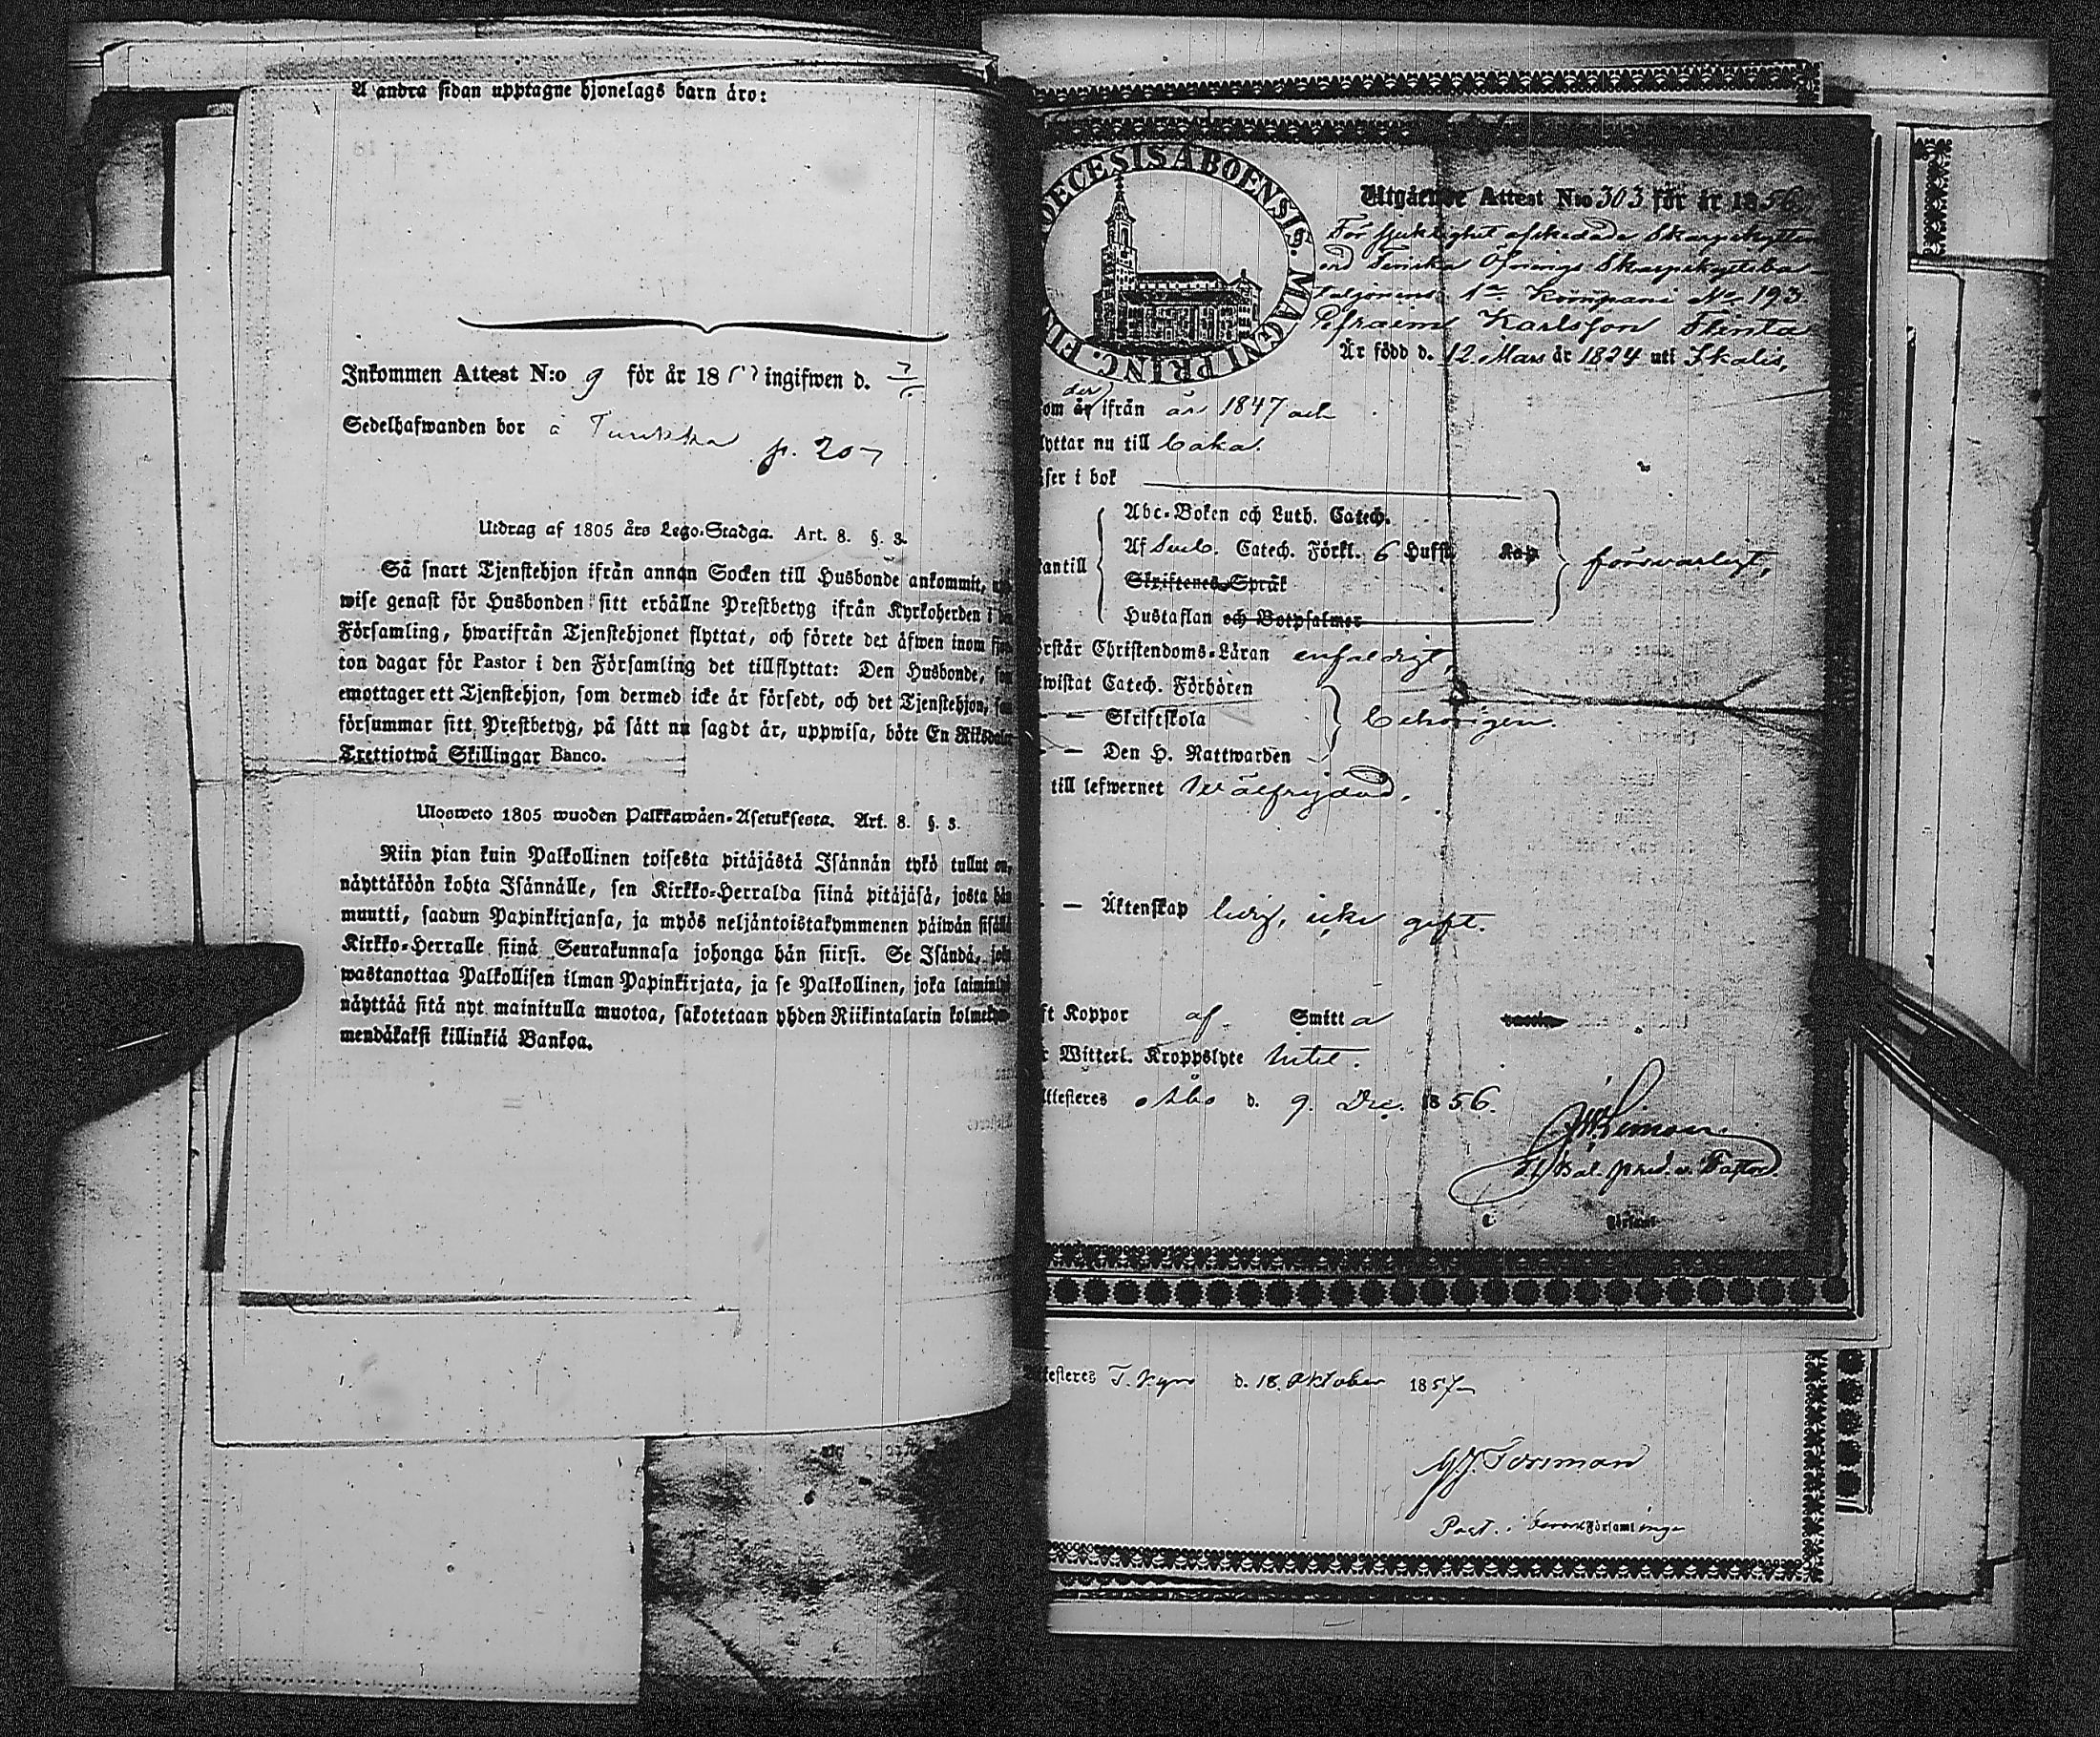 Å andra sidan upptagne hjonelags barn äro:
Inkommen Attest N:o 9 för år 18 ingifwen d.
Sedelhafwanden bor å p. 207
Utdrag af 1805 års Lego-Stadga. Art. 8. §. 3.
Så snart Tjenstehjon ifrån annan Socken till Husbonde ankommit,
wise genast för Husbonden sitt erhållne Prestbetyg ifrån Kyrkoherden i
Församling, hwarifrån Tjenstehjonet flyttat, och förete det äfwen inom
ton dagar för Pastor i den Församling det tillflyttat: Den Husbonde,
emottager ett Tjenstehjon, som dermed icke är försedt, och det Tjenstehjon,
försummar sitt Prestbetyg, på sätt nu sagdt är, uppwisa, böte En Riksdaler
Trettiotwå Skillingar Banco.
Ulosweto 1805 wuoden Palkkawäen-Asetuksesta. Art. 8. §. 3.
Niin pian kuin Palkollinen toisesta pitäjästä Isännän tykö tullut on,
näyttäköön kohta Isännälle, sen Kirkko-Herralda siinä pitäjäsä, josta hän
muutti, saadun Papinkirjansa, ja myös neljäntoistakymmenen päiwän sisällä
Kirkko-Herralle siinä Seurakunnasa johonga hän siirsi. Se Isändä,
wastanottaa Palkollisen ilman Papinkirjata, ja se Palkollinen, joka
näyttää sitä nyt mainitulla muotoa, sakotetaan yhden Riikintalarin
mendäkaksi killinkiä Bankoa.
DECESIS ABOENSIS. MAGNI PRINC.
Utgående Attest N:o 303 för år 1856
För sjuklighet afskedade Skarpskytten
vid Finska Öfnings Skarpskytteba-
taljonens 1:a Kompani No 193
Efraim Karlsson Flinta
Är född d. 12 Mars år 1824 uti Skalis,
om der ifrån års 1847 och
lyttar nu till
äser i bok
Abc-Boken och Luth. Catech.
Af Sweb. Catech. Förkl. 6 Hufst. Kap
antill försvarligt,
Skriftenes Språk
Hustaflan och Botpsalmer
örstår Christendoms-Läran enfaldigt,
wistat Catech. Förhören
— — Skriftskola behörigen.
— — Den H. Nattwarden
till lefwernet wälfrejdad.
— — Äktenskap ledig, icke gift.
ft Koppor af Smitt a
r Witterl. Kroppslyte Intet.
ttesteres Åbo d. 9. Dec. 1856.
testeres T. Kyro d. 18. Oktober 1857
Forsman
Past. i Församlinge